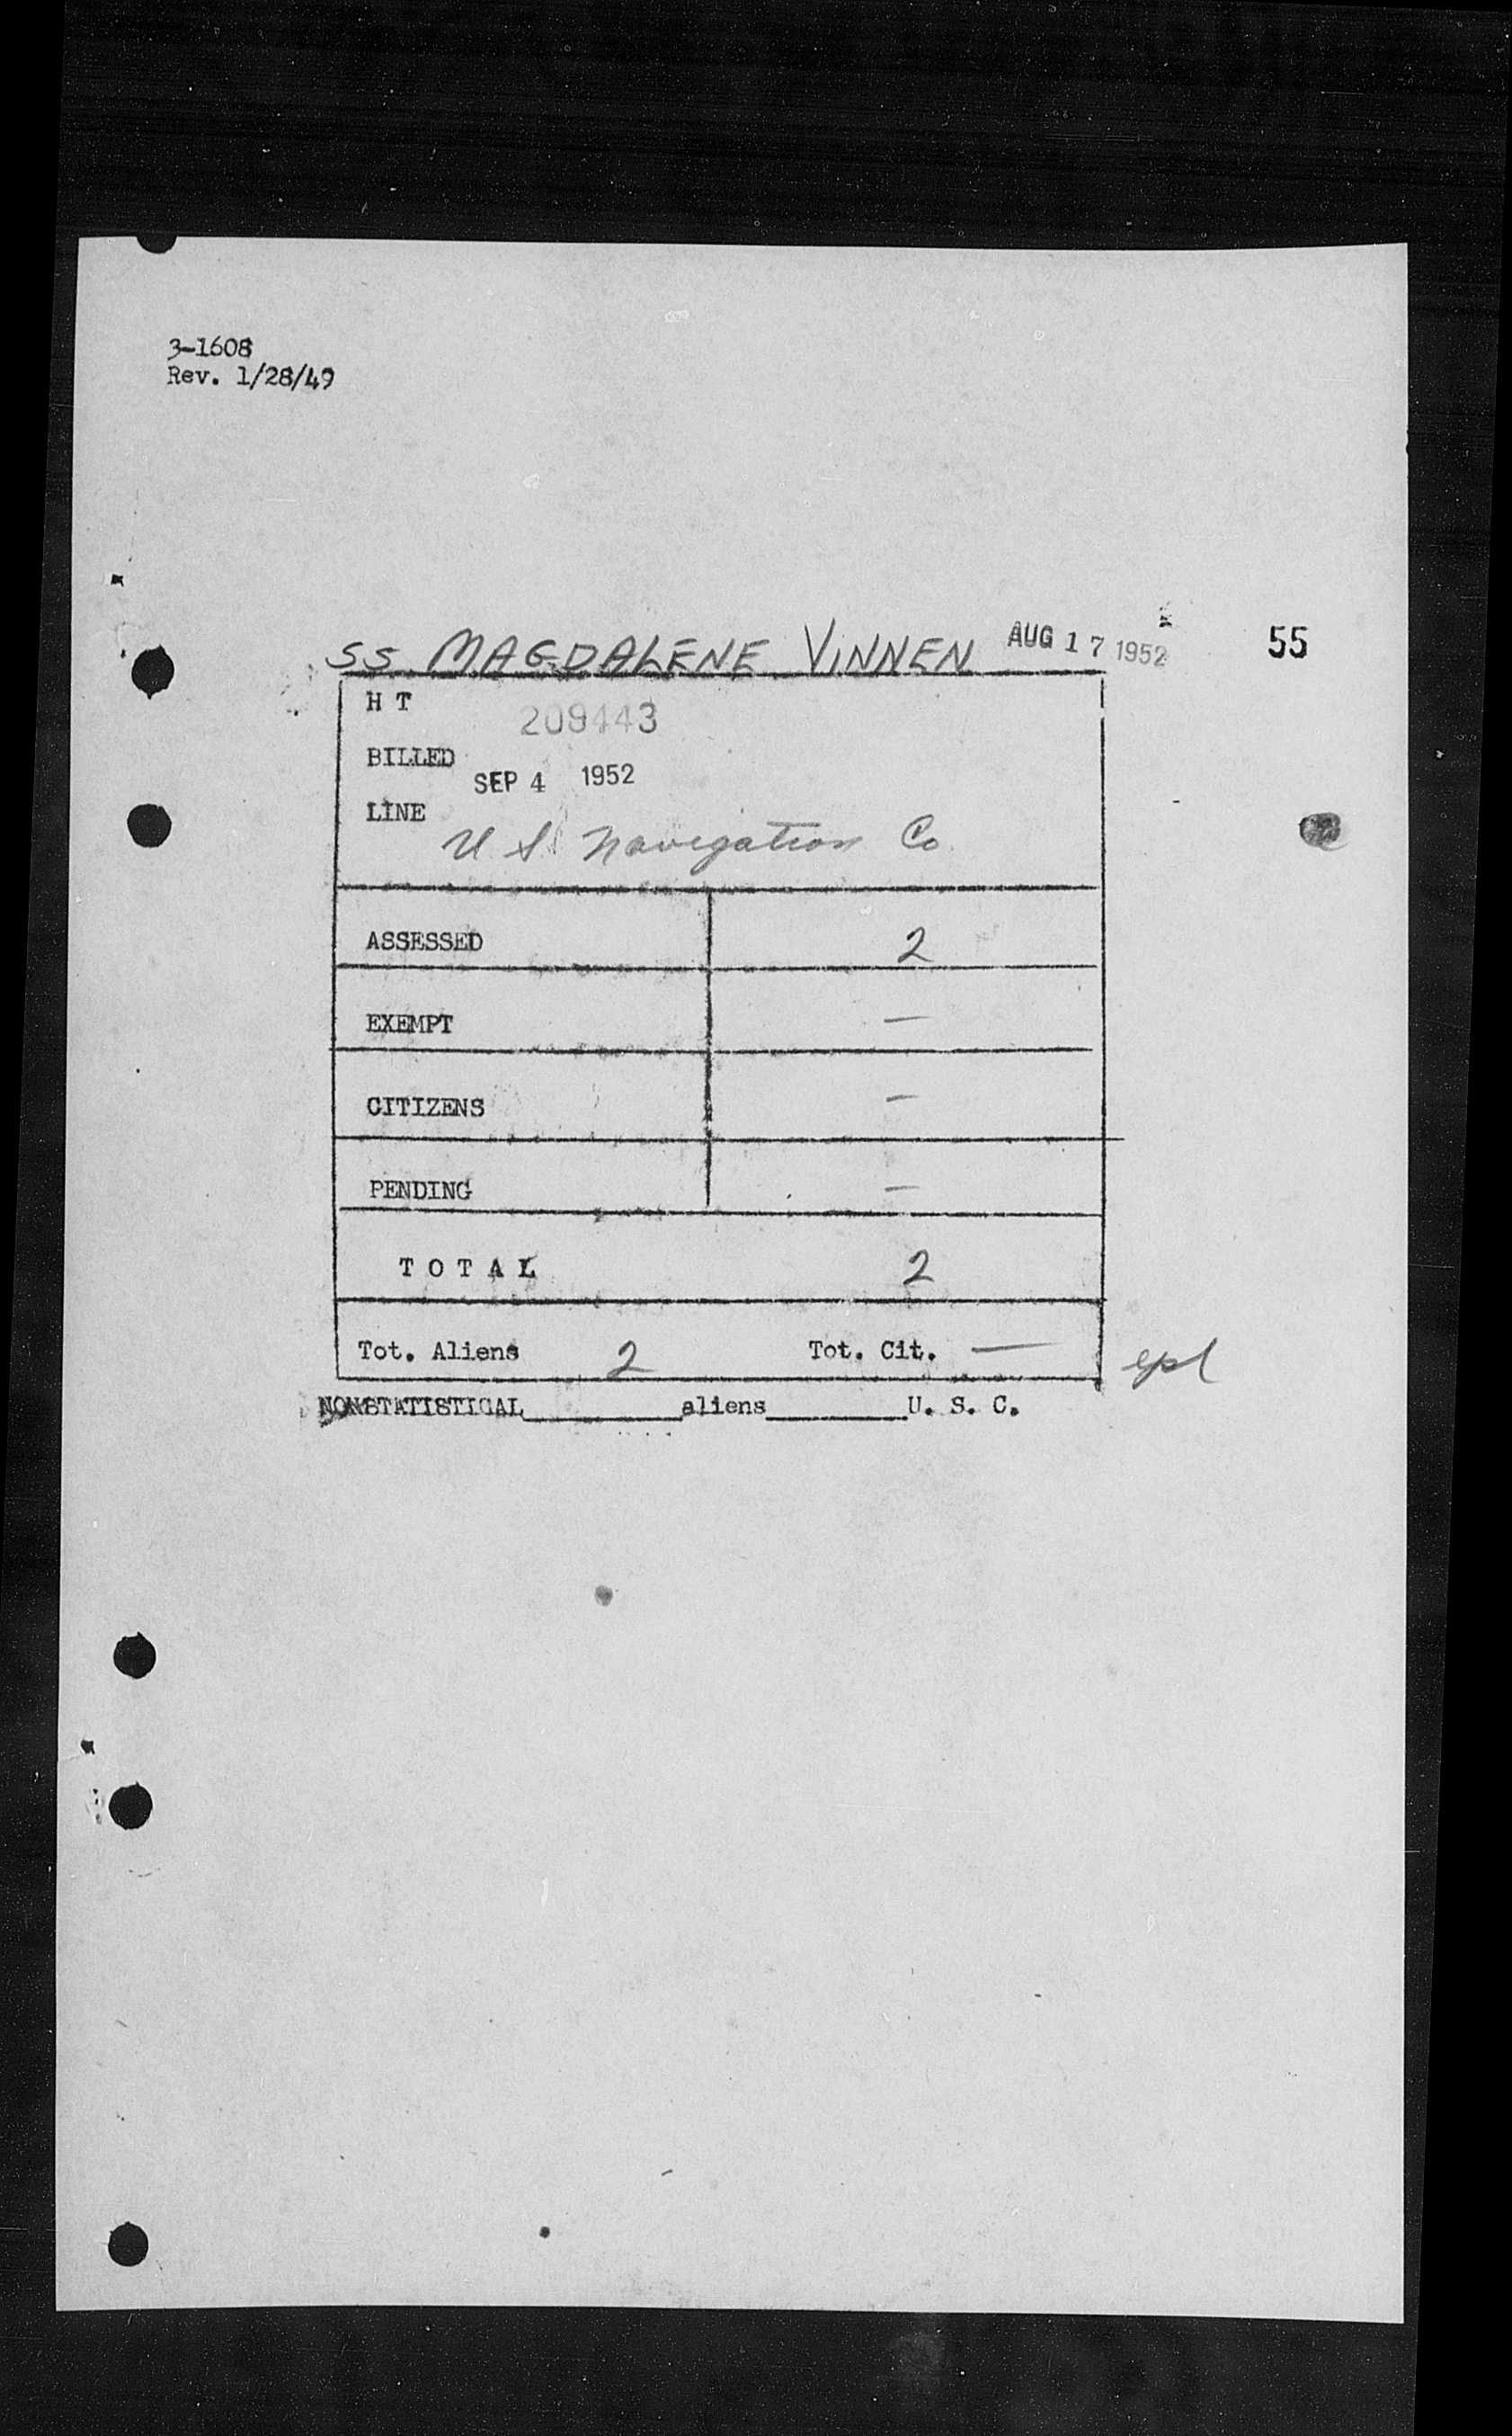 3-1608
Rev. 1/28/49
SS MAGDALENE VINNEN AUG 17 1952 55
H T 209443
BILLED SEP 4 1952
LINE U S Navigation Co
ASSESSED 2
EXEMPT —
CITIZENS —
PENDING —
TOTAL 2
Tot. Aliens 2 Tot. Cit. —
NONSTATISTICAL________aliens________U. S. C.